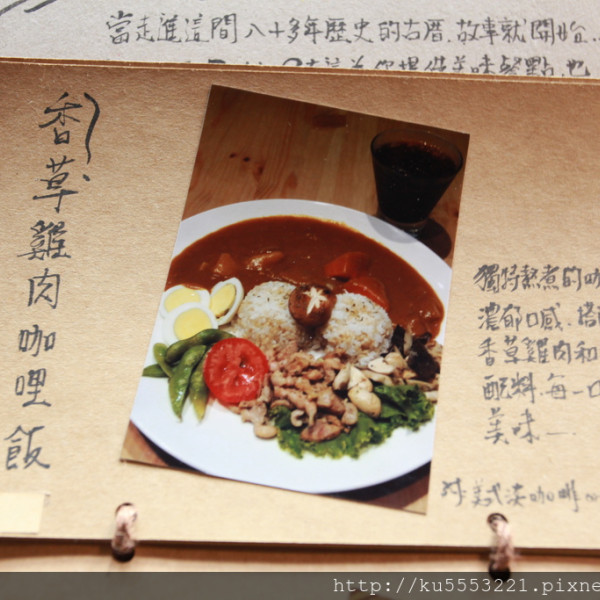 當走進這間八十多年歷史的古厝,故事就開始
香草雞肉咖哩飯
獨特熬煮的咖
濃郁口感.搭配
香草雞肉和
配料.每一口
美味—.
附美式淡咖啡
http://ku5553221.pixne